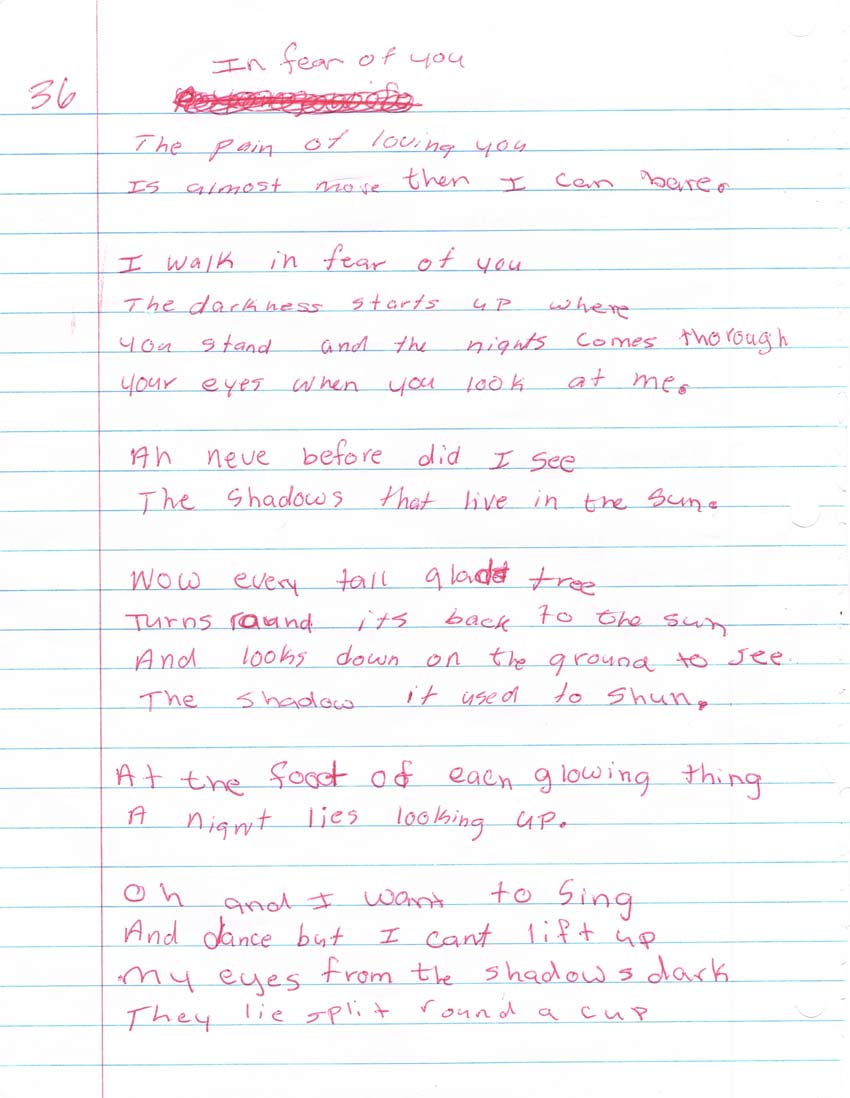 In fear of you
36
The pain of loving you
Is almost more then I can bare.
I walk in fear of you
The darkness starts up where
you stand and the nights comes thorough
your eyes when you look at me.
Ah neve before did I see
The shadows that live in the sun.
Now every tall glad tree
Turns round its back to the sun
And looks down on the ground to see
The shadow it used to shun.
At the foot of each glowing thing
A night lies looking up.
Oh and I want to sing
And dance but I cant lift up
My eyes from the shadows dark
They lie split round a cup